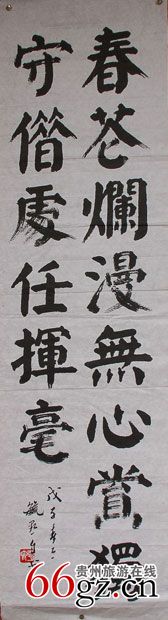 春花爛漫無心賞獨
守僭處任揮毫
戊子春
66gz.cn
贵州旅游在线